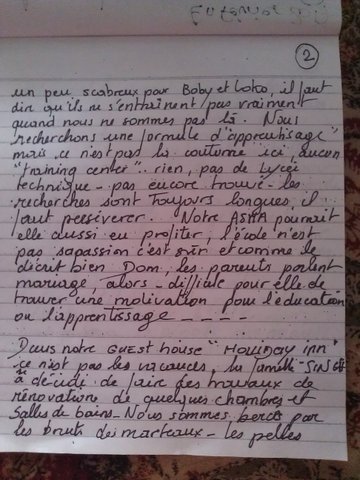 2
un peu scabreux pour Boby et Loko, il faut
dire qu'ils ne s'entraînent pas vraiment
quand nous ne sommes pas là. Nous
recherchons une formule d'"apprentissage"
mais ce n'est pas la coutume ici, aucun
"training center".. rien, pas de lycée
technique - pas encore trouvé - les
recherches sont toujours longues, il
faut perséverer. Notre ASHA pourrait
elle aussi en profiter, l'école n'est
pas sa passion c'est sûr et comme le
décrit bien Dom, les parents parlent
mariage, alors - difficile pour elle de
trouver une motivation pour l'éducation
ou l'apprentissage - - - -
Dans notre GUEST house "HOLIDAY INN"
ce n'est pas les vacances, la famille SINGH
a décidé de faire des travaux de
rénovation de quelques chambres et
salles de bains - Nous sommes bercés par
les bruits des marteaux - les pelles